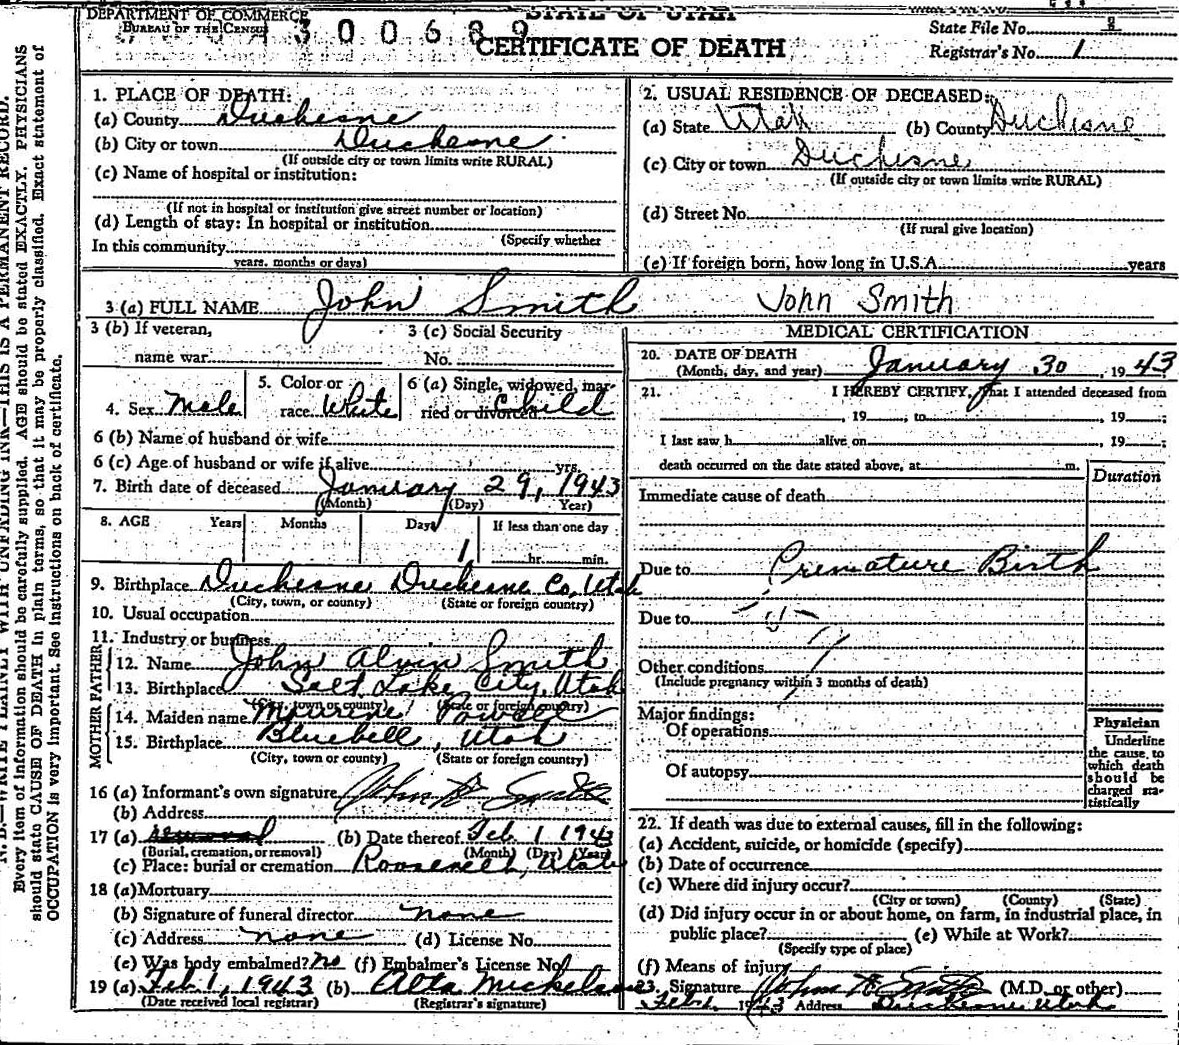 DEPARTMENT OF COMMERCE
BUREAU OF THE CENSUS
4300689
STATE OF UTAH
CERTIFICATE OF DEATH
State File No. 8
Registrar's No. 1
N. B.—WRITE PLAINLY WITH UNFADING INK—THIS IS A PERMANENT RECORD.
Every item of information should be carefully supplied. AGE should be stated EXACTLY. PHYSICIANS
should state CAUSE OF DEATH in plain terms, so that it may be properly classified. Exact statement of
OCCUPATION is very important. See instructions on back of certificate.
1. PLACE OF DEATH:
(a) County Duchesne
(b) City or town Duchesne
(If outside city or town limits write RURAL)
(c) Name of hospital or institution:
(If not in hospital or institution give street number or location)
(d) Length of stay: In hospital or institution
(Specify whether
In this community
years, months or days)
2. USUAL RESIDENCE OF DECEASED:
(a) State Utah (b) County Duchesne
(c) City or town Duchesne
(If outside city or town limits write RURAL)
(d) Street No.
(If rural give location)
(e) If foreign born, how long in U.S.A. years
3 (a) FULL NAME John Smith John Smith
3 (b) If veteran,
name war
3 (c) Social Security
No.
4. Sex Male
5. Color or
race White
6 (a) Single, widowed, mar-
ried or divorced Child
6 (b) Name of husband or wife
6 (c) Age of husband or wife if alive yrs.
7. Birth date of deceased January 29, 1943
(Month) (Day) (Year)
8. AGE Years Months Days If less than one day
1 hr. min.
9. Birthplace Duchesne Duchesne Co, Utah
(City, town, or county) (State or foreign country)
10. Usual occupation
11. Industry or business
FATHER
12. Name John Alvin Smith
13. Birthplace Salt Lake City, Utah
(City, town or county) (State or foreign country)
MOTHER
14. Maiden name Maurine Powell
15. Birthplace Bluebell, Utah
(City, town or county) (State or foreign country)
16 (a) Informant's own signature
(b) Address
17 (a) removal (b) Date thereof Feb 1 1943
(Burial, cremation, or removal) (Month) (Day) (Year)
(c) Place: burial or cremation Roosevelt, Utah
18 (a) Mortuary
(b) Signature of funeral director none
(c) Address none (d) License No.
(e) Was body embalmed? no (f) Embalmer's License No.
19 (a) Feb 1, 1943 (b) Alta Mickelson
(Date received local registrar) (Registrar's signature)
MEDICAL CERTIFICATION
20. DATE OF DEATH
(Month, day, and year) January 30, 1943
21. I HEREBY CERTIFY, that I attended deceased from
, 19 , to , 19 ;
I last saw h alive on , 19 ;
death occurred on the date stated above, at m.
Duration
Immediate cause of death
Due to Premature Birth
Due to
Other conditions
(Include pregnancy within 3 months of death)
Major findings:
Of operations
Of autopsy
Physician
Underline
the cause to
which death
should be
charged sta-
tistically
22. If death was due to external causes, fill in the following:
(a) Accident, suicide, or homicide (specify)
(b) Date of occurrence
(c) Where did injury occur?
(City or town) (County) (State)
(d) Did injury occur in or about home, on farm, in industrial place, in
public place? (e) While at Work?
(Specify type of place)
(f) Means of injury
23. Signature (M.D. or other)
Feb 1 1943 Address Duchesne Utah